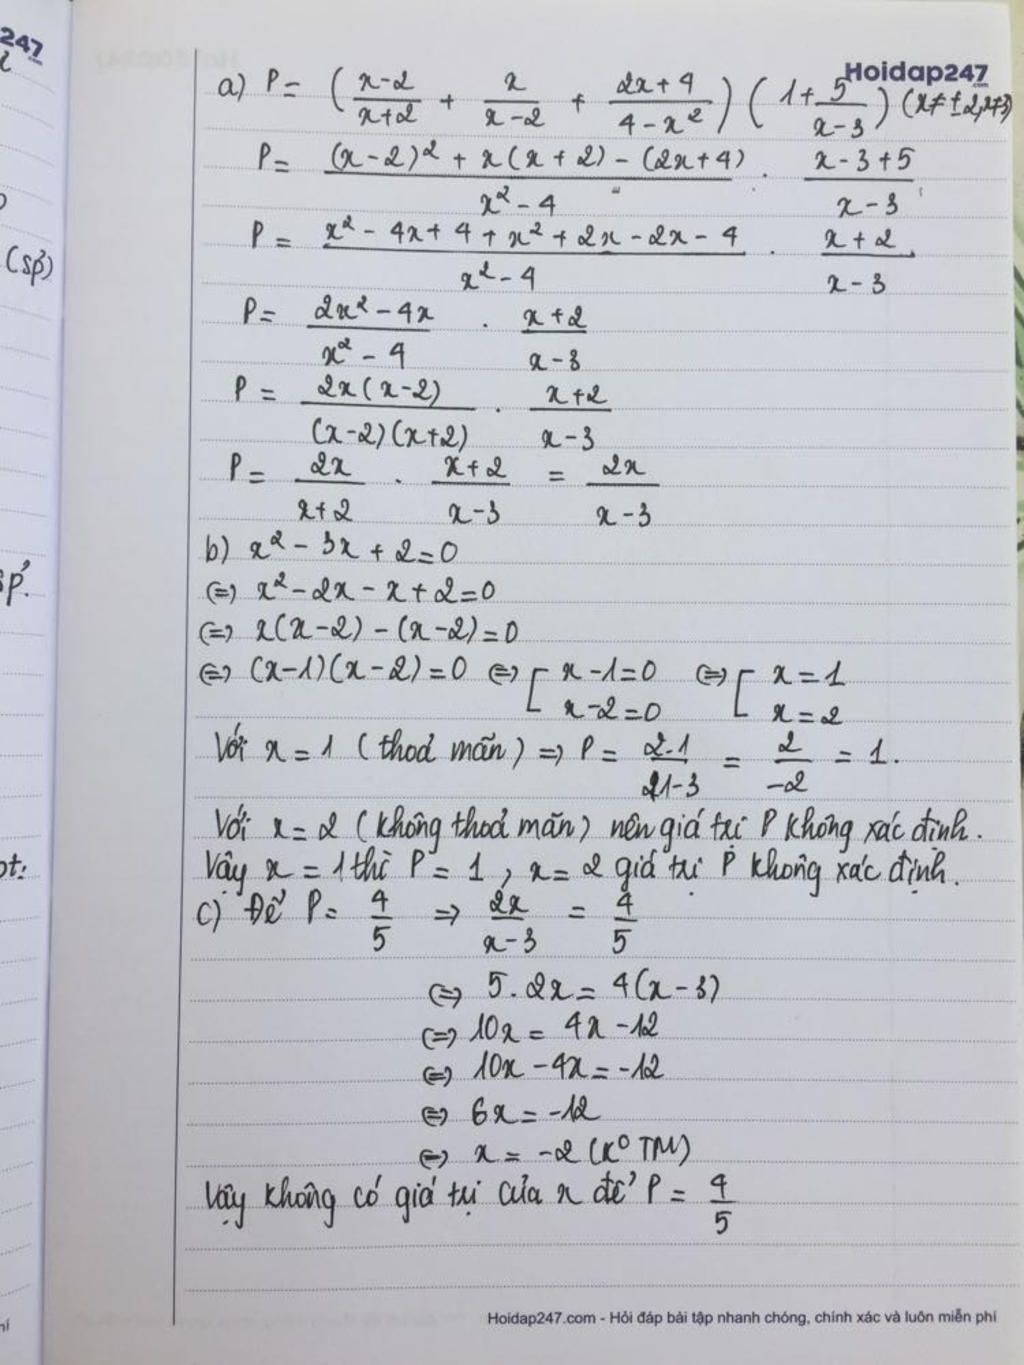 247
.com
Hoidap247
.com
a) P = ( (x-2)/(x+2) + x/(x-2) + (2x+4)/(4-x²) ) ( 1 + 5/(x-3) ) (x ≠ ±2, x≠3)
P = ((x-2)² + x(x+2) - (2x+4))/(x²-4) . (x-3+5)/(x-3)
P = (x² - 4x + 4 + x² + 2x - 2x - 4)/(x²-4) . (x+2)/(x-3)
(sp')
P = (2x² - 4x)/(x²-4) . (x+2)/(x-3)
P = (2x(x-2))/((x-2)(x+2)) . (x+2)/(x-3)
P = 2x/(x+2) . (x+2)/(x-3) = 2x/(x-3)
b) x² - 3x + 2 = 0
⇔ x² - 2x - x + 2 = 0
⇔ x(x-2) - (x-2) = 0
⇔ (x-1)(x-2) = 0 ⇔ [ x-1=0 ⇔ [ x = 1
x-2=0 x = 2
Với x = 1 (thoả mãn) => P = 2.1/(1-3) = 2/-2 = 1.
Với x = 2 (không thoả mãn) nên giá trị P không xác định.
Vậy x = 1 thì P = 1, x = 2 giá trị P không xác định.
c) Để P = 4/5 => 2x/(x-3) = 4/5
⇔ 5.2x = 4(x-3)
⇔ 10x = 4x - 12
⇔ 10x - 4x = -12
⇔ 6x = -12
⇔ x = -2 (K⁰ TM)
Vậy không có giá trị của x để P = 4/5
Hoidap247.com - Hỏi đáp bài tập nhanh chóng, chính xác và luôn miễn phí